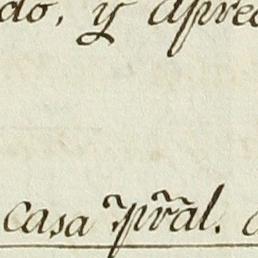 do, y apre
casa prãl.